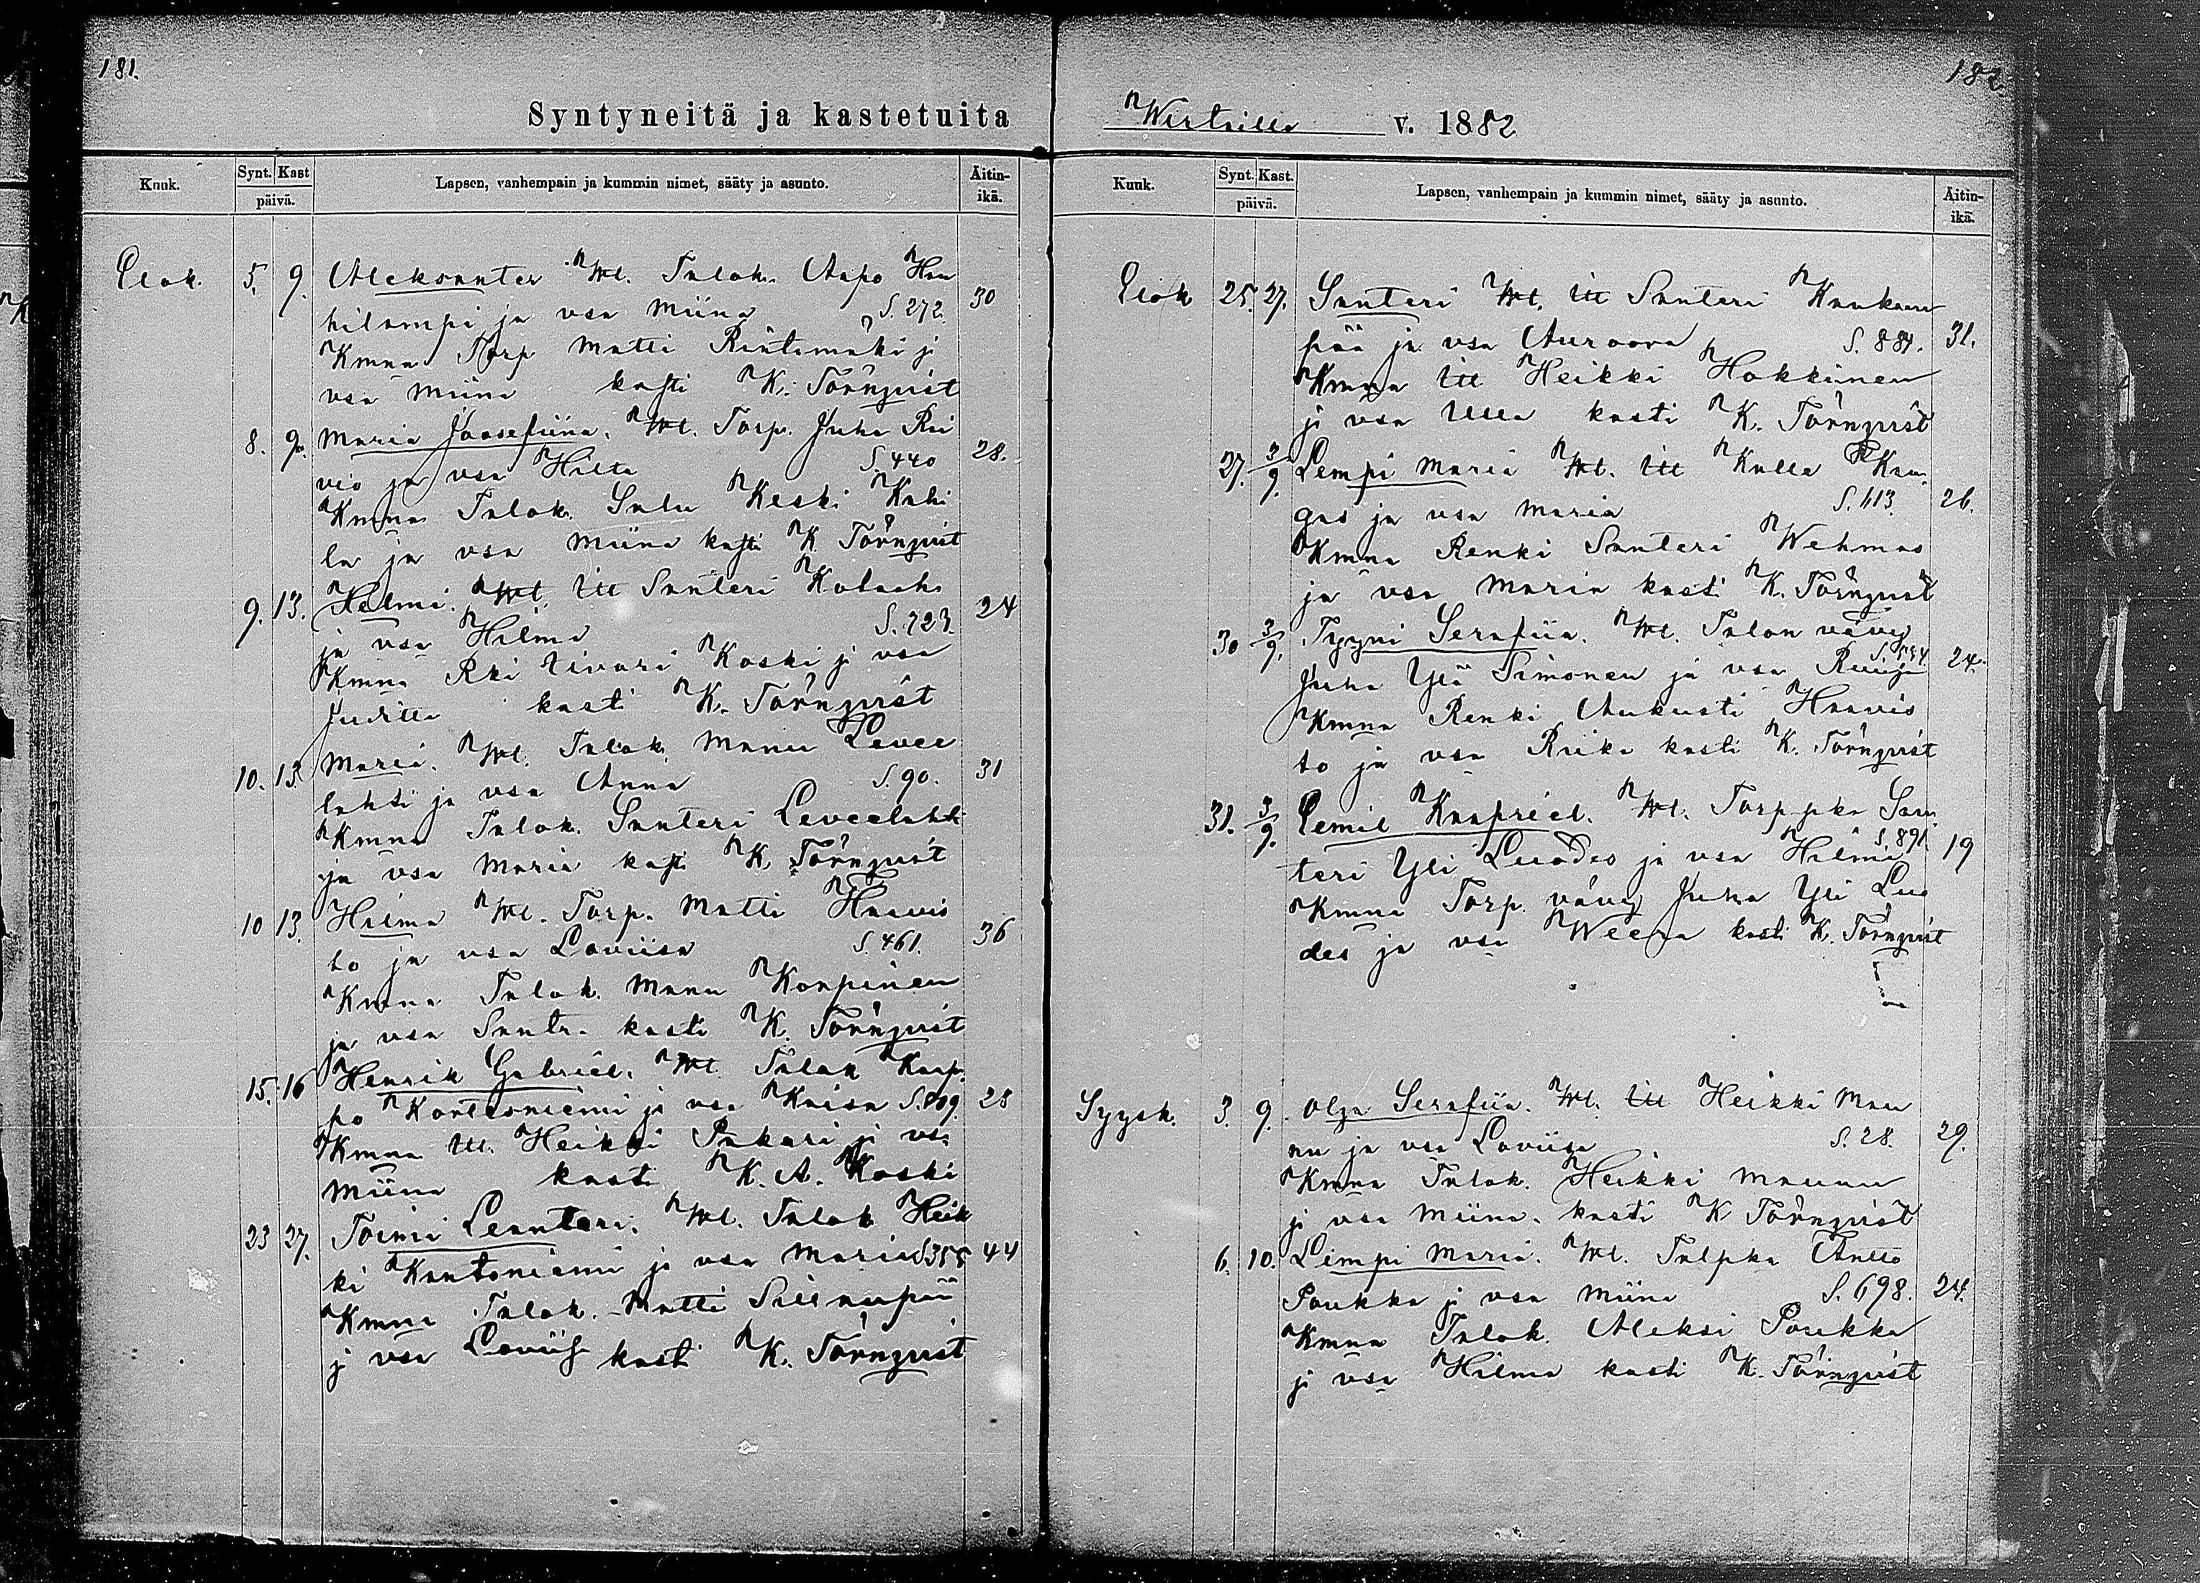 181.
Syntyneitä ja kastetuita
Kuuk. Synt. Kast päivä. Lapsen, vanhempain ja kummin nimet, sääty ja asunto. Äitin-ikä.
Elok. 5. 9. Aleksanter Wl. Talok. Aapo Han
hilampi ja vsa Miina S. 272. 30
Kmna Torp Matti Rintamäki j
vsa Miina kasti K. Törnqvist
8. 9. Maria Joosefiina. Wl. Torp. Juha Rai
vio ja vsa Hilta S. 440 28.
Kmna Talok. Salu Keski Kahi
la ja vsa Miina kasti K. Törnqvist
9. 13. Helmi. Wl. Itl Santeri Kotach
ja vsa Hilma S. 723. 24
Kmna Rki Iivari Koski j vsa
Juditta kasti K. Törnqvist
10. 13. Maria. Wl. Talok. Manu Levee
lahti ja vsa Anna S. 90. 31
Kmna Talok. Santeri Leveelahti
ja vsa Maria kasti K. Törnqvist
10 13. Hilma Wl. Torp. Matti Haavis
to ja vsa Loviisa S. 461. 36
Kmna Talok. Manu Korpinen
ja vsa Santr. kasti K. Törnqvist
15. 16 Henrik Gabriel. Wl. Talok Kaap
po Kortesniemi j vsa Kaisa 28
Kmna Itl. Heikki Pakari j vsa
Miina kasti K. A. Koski
23 27. Toimi Leanteri. Wl. Talok Heik
ki Kantoniemi j vsa Maria S 355 44
Kmna Talok. Matti Sillanpää
j vsa Loviis kasti K. Törnqvist
182.
Wirtailla v. 1882
Kuuk. Synt. Kast. päivä. Lapsen, vanhempain ja kummin nimet, sääty ja asunto. Äitin-ikä.
Elok 25. 27. Santeri Wl. Itl Santeri Kaukaan
pää ja vsa Auroora S. 884. 31.
Kmna Itl Heikki Hokkinen
j vsa Ulla kasti K. Törnqvist
27. 3/9. Lempi Maria Wl. Itl Kalle Kan
gas ja vsa Maria S. 113. 26.
Kmna Renki Santeri Wehmas
ja vsa Maria kasti K. Törnqvist
30 3/9. Tyyni Serafiia. Wl. Talon vävy
Juha Ylä Simonen ja vsa 24.
Kmna Renki Aukusti Haavis
to ja vsa Riika kasti K. Törnqvist
31. 3/9. Eemil Kaapriel. Wl. Torp pka San
teri Yli Luodes ja vsa Hilma S. 891 19
Kmna Torp. vävy Juha Yli Luo
des ja vsa Weera kasti K. Törnqvist
Syysk. 3. 9. Olga Serafiia. Wl. Itl Heikki Mau
nu ja vsa Loviisa S. 28. 29.
Kmna Talok. Heikki Maunu
j vsa Miina. kasti K Törnqvist
6. 10. Lempi Maria. Wl. Talpka Antto
Poukka j vsa Miina S. 698. 24.
Kmna Talok. Aleksi Poukka
j vsa Hilma kasti K. Törnqvist